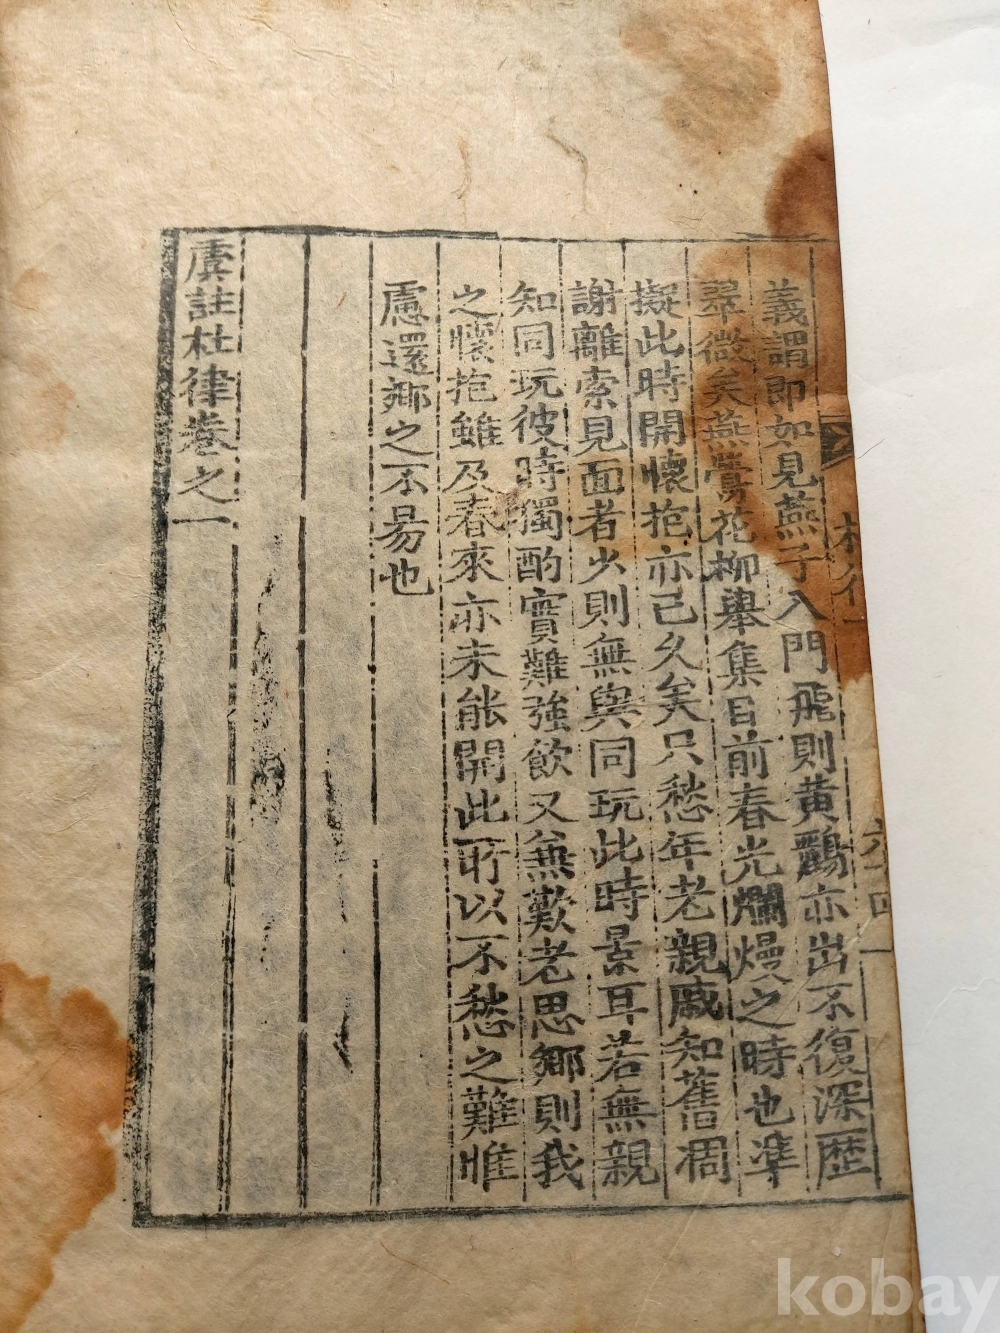 義謂即如見燕子入門飛則黃鸝亦出不復深歴
翠微矣燕鶯花柳舉集目前春光爛熳之時也準
擬此時開懷抱亦已久矣只愁年老親戚知舊凋
謝離索見面者少則無與同玩此時景耳若無親
知同玩彼時獨酌實難強飲又兼歎老思鄉則我
之懷抱雖及春來亦未能開此所以不愁之難惟
慮還鄉之不易也
虞註杜律卷之一
六十四
kobay